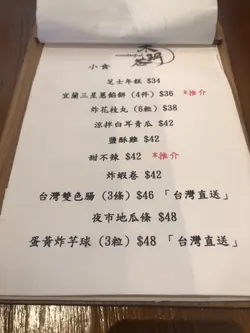 小食
芝士年糕 $34
宜蘭三星蔥餡餅 (4件) $36 *推介
炸花枝丸 (6粒) $38
涼拌白耳青瓜 $42
鹽酥雞 $42
甜不辣 $42 *推介
炸蝦卷 $42
台灣雙色腸 (3條) $46 「台灣直送」
夜市地瓜條 $48
蛋黃炸芋球 (3粒) $48 「台灣直送」